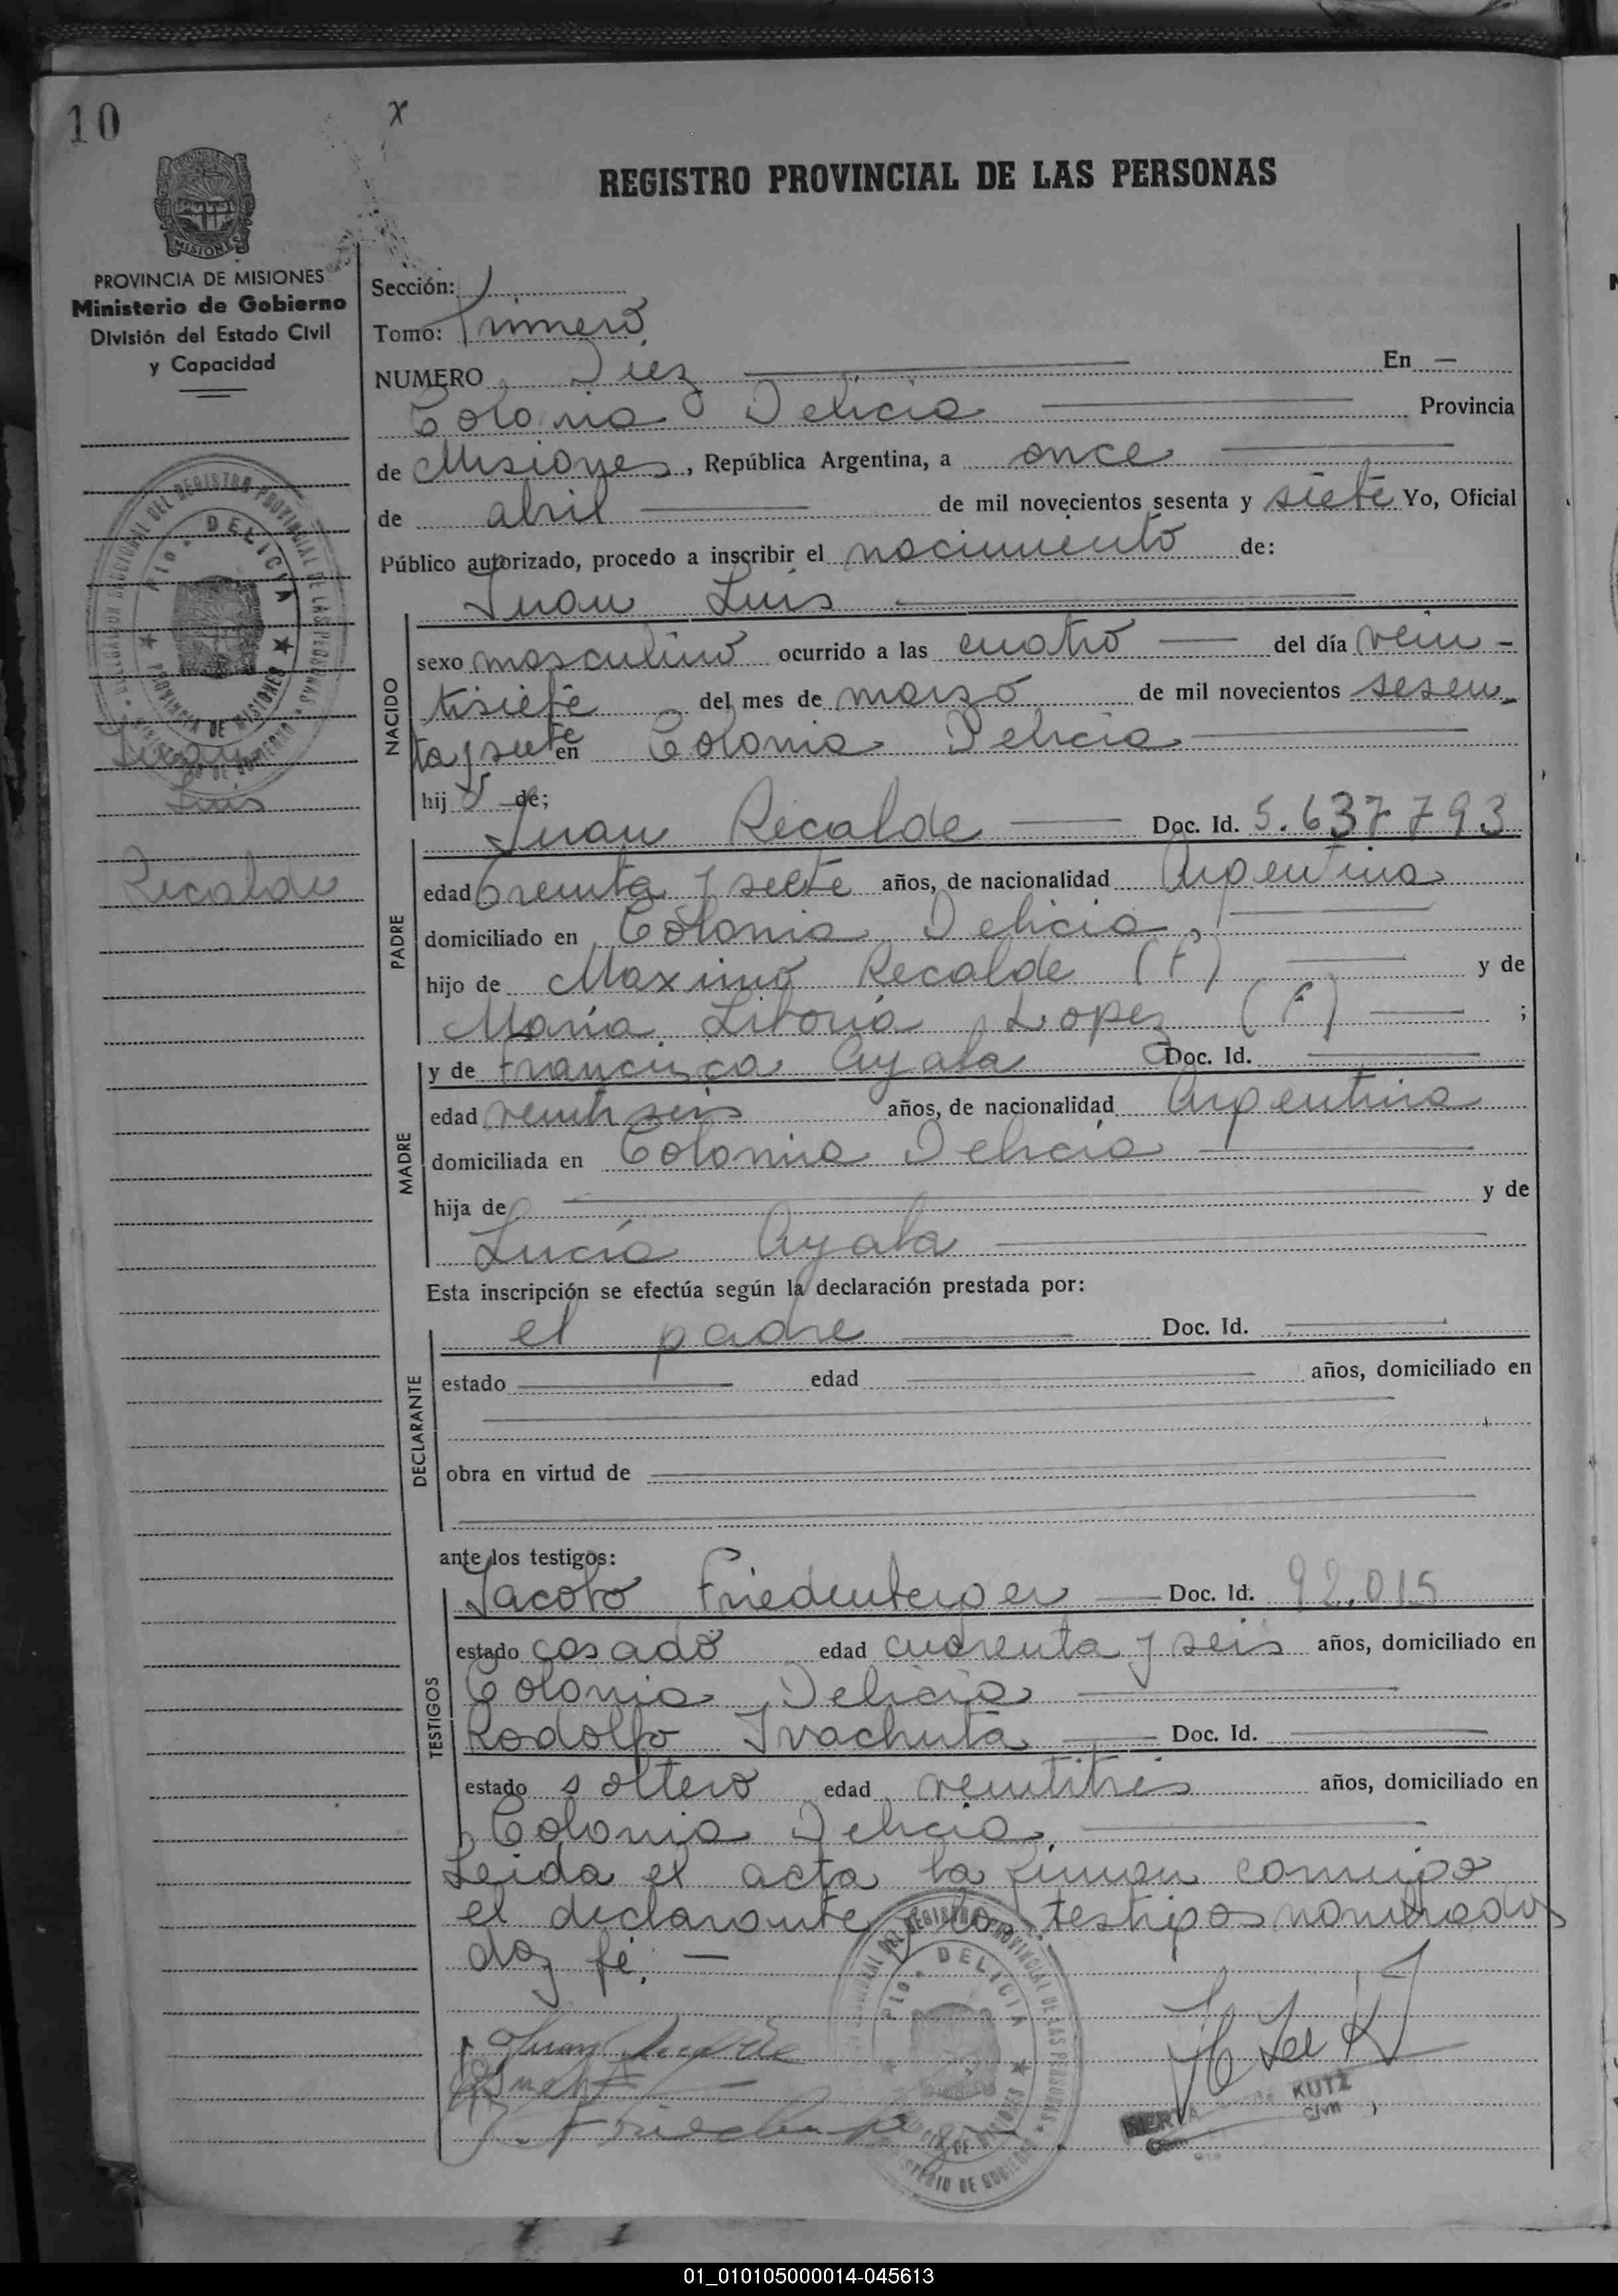 10
x
REGISTRO PROVINCIAL DE LAS PERSONAS
MISIONES
PROVINCIA DE MISIONES
Ministerio de Gobierno
División del Estado Civil
y Capacidad
Juan
Luis
Recalde
Sección:
Tomo: Primero
NUMERO Diez En —
Colonia Delicia Provincia
de Misiones, República Argentina, a once
de abril de mil novecientos sesenta y siete Yo, Oficial
Público autorizado, procedo a inscribir el nacimiento de:
Juan Luis
NACIDO
sexo masculino ocurrido a las cuatro del día vein-
tisiete del mes de marzo de mil novecientos sesen-
ta y siete en Colonia Delicia
hij o de;
PADRE
Juan Recalde Doc. Id. 5.637.793
edad treinta y siete años, de nacionalidad Argentina
domiciliado en Colonia Delicia,
hijo de Maximo Recalde (f) y de
Maria Liboria Lopez (f) ;
MADRE
y de Francisca Ayala Doc. Id.
edad veintiseis años, de nacionalidad Argentina
domiciliada en Colonia Delicia
hija de y de
Lucía Ayala
Esta inscripción se efectúa según la declaración prestada por:
DECLARANTE
el padre Doc. Id.
estado edad años, domiciliado en
obra en virtud de
ante los testigos:
TESTIGOS
Jacobo Friedenberger Doc. Id. 92.015
estado casado edad cuarenta y seis años, domiciliado en
Colonia Delicia
Rodolfo Ivachuta Doc. Id.
estado soltero edad veintitrés años, domiciliado en
Colonia Delicia.
Leida el acta la firman conmigo
el declarante y los testigos nombrados
doy fé. —
Pto. DELICIA
PROVINCIA DE MISIONES
Juan Recalde
KUTZ
Civil
01_010105000014-045613